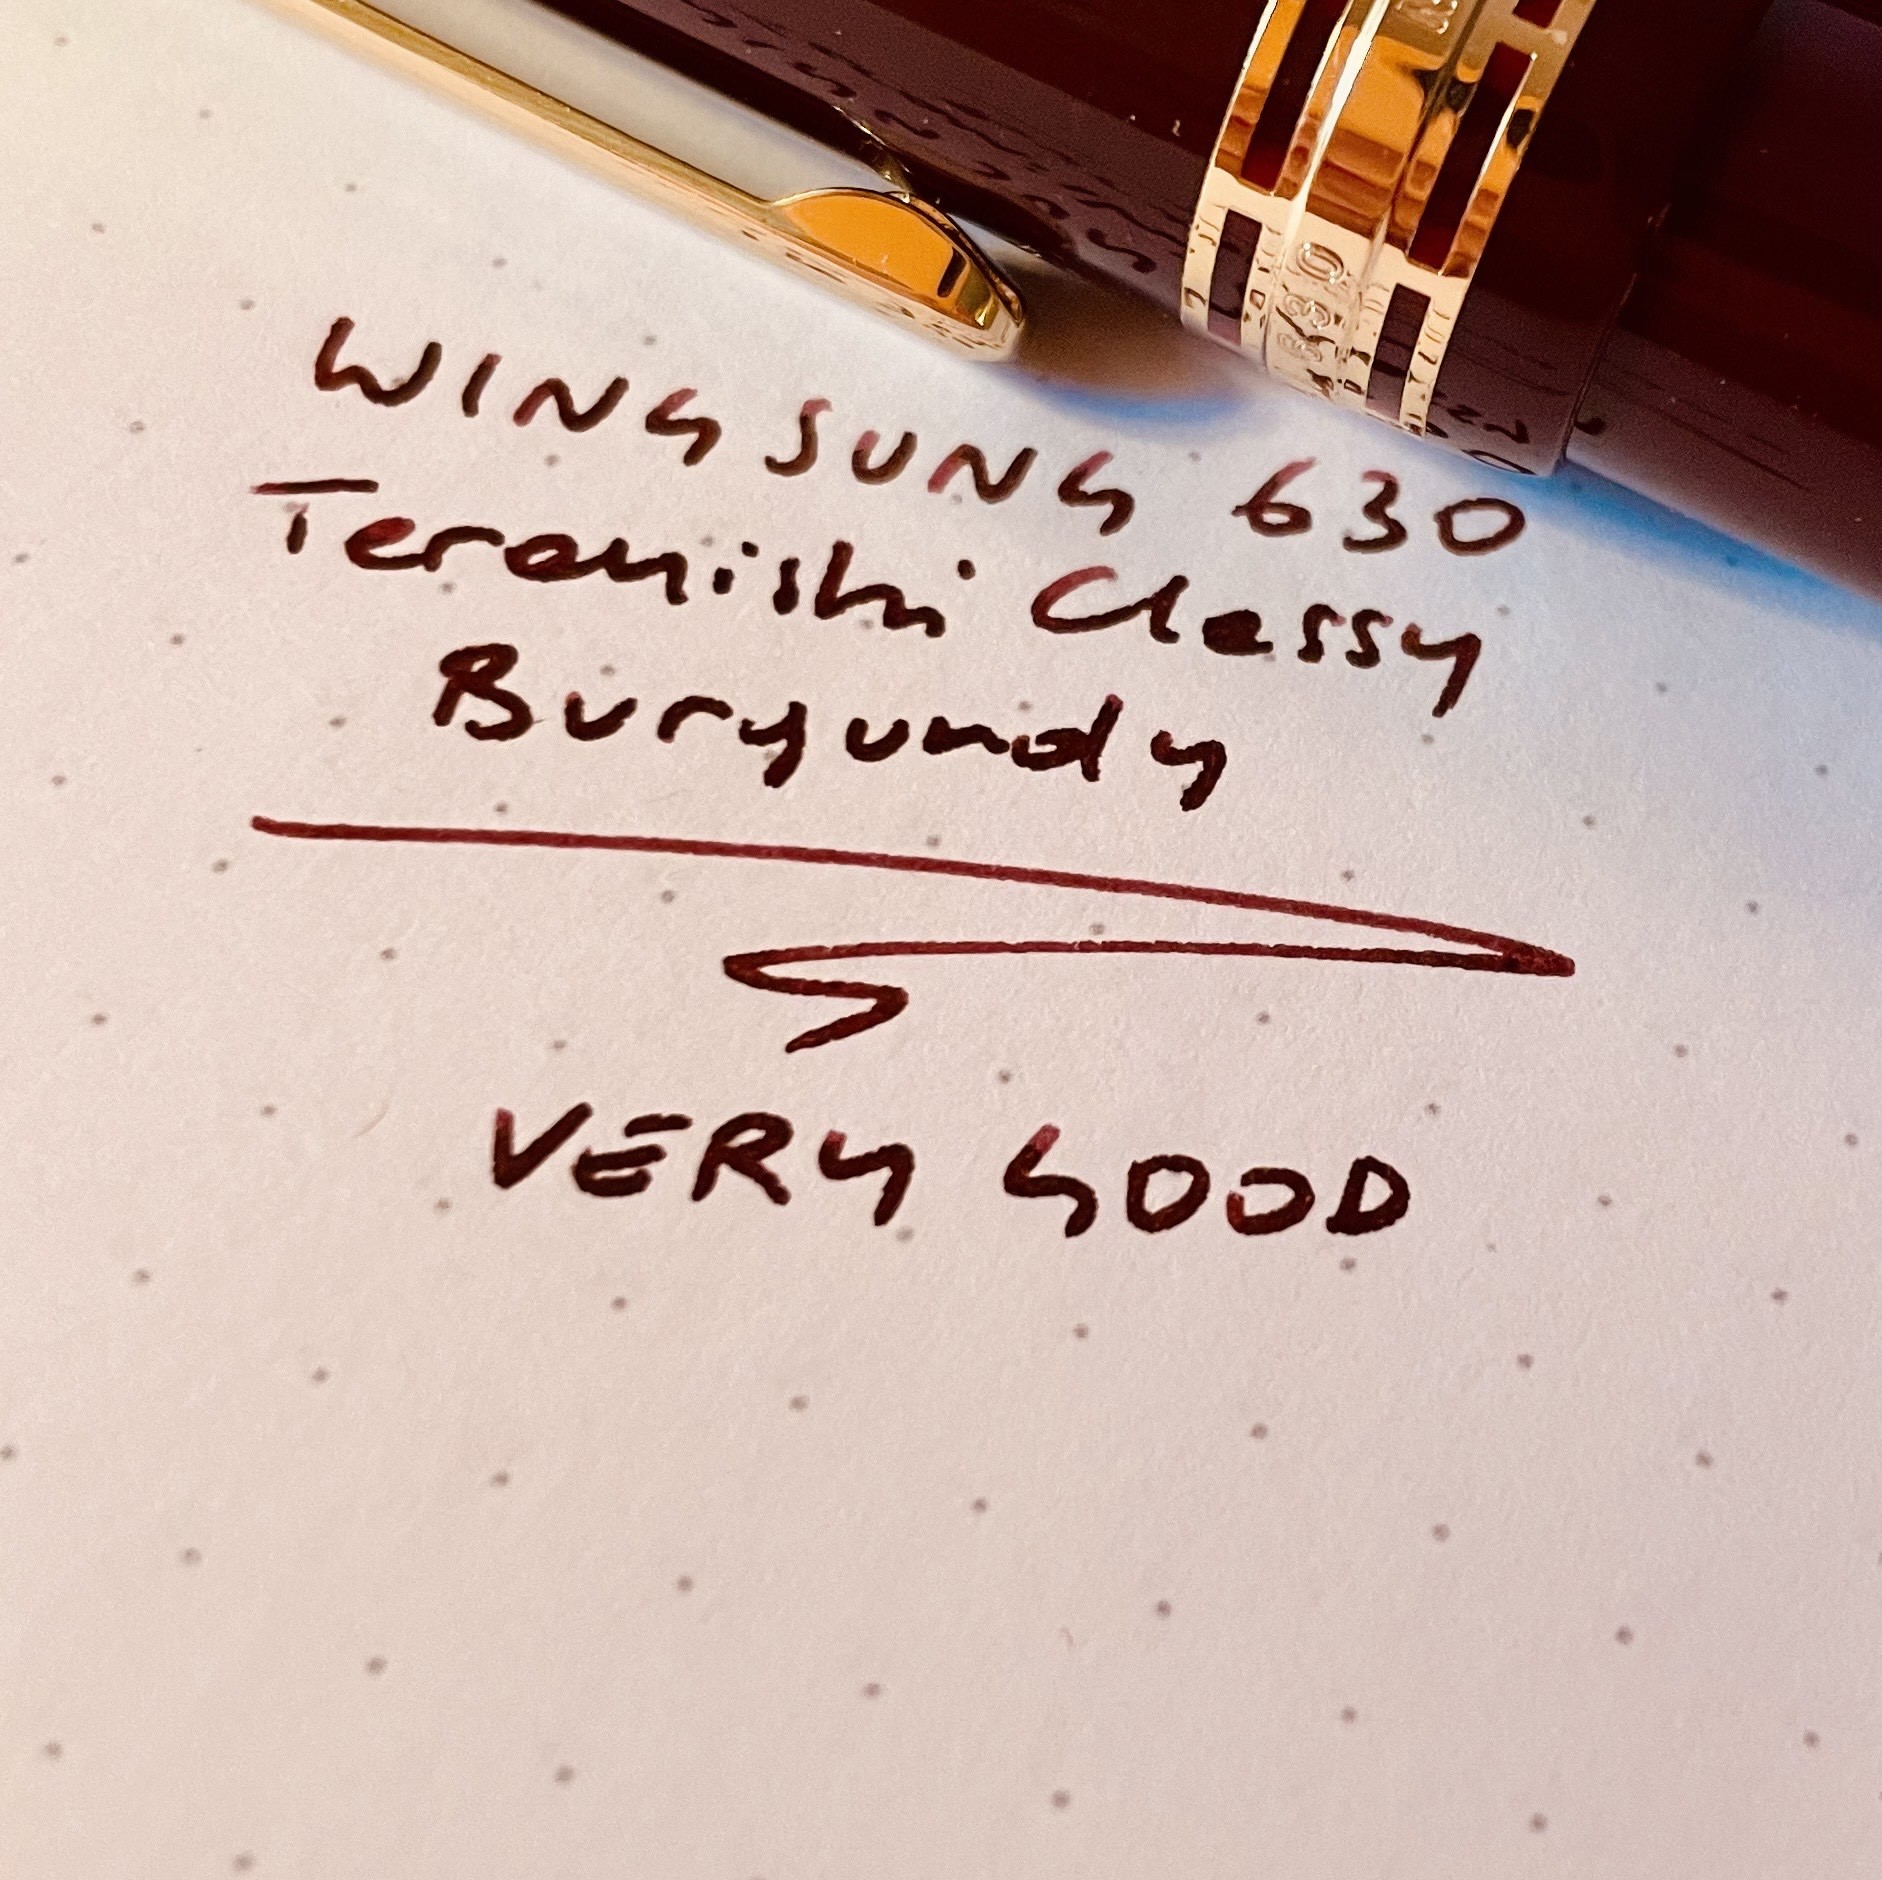 WING SUNG 630
Teranishi Classy
Burgundy
VERY GOOD